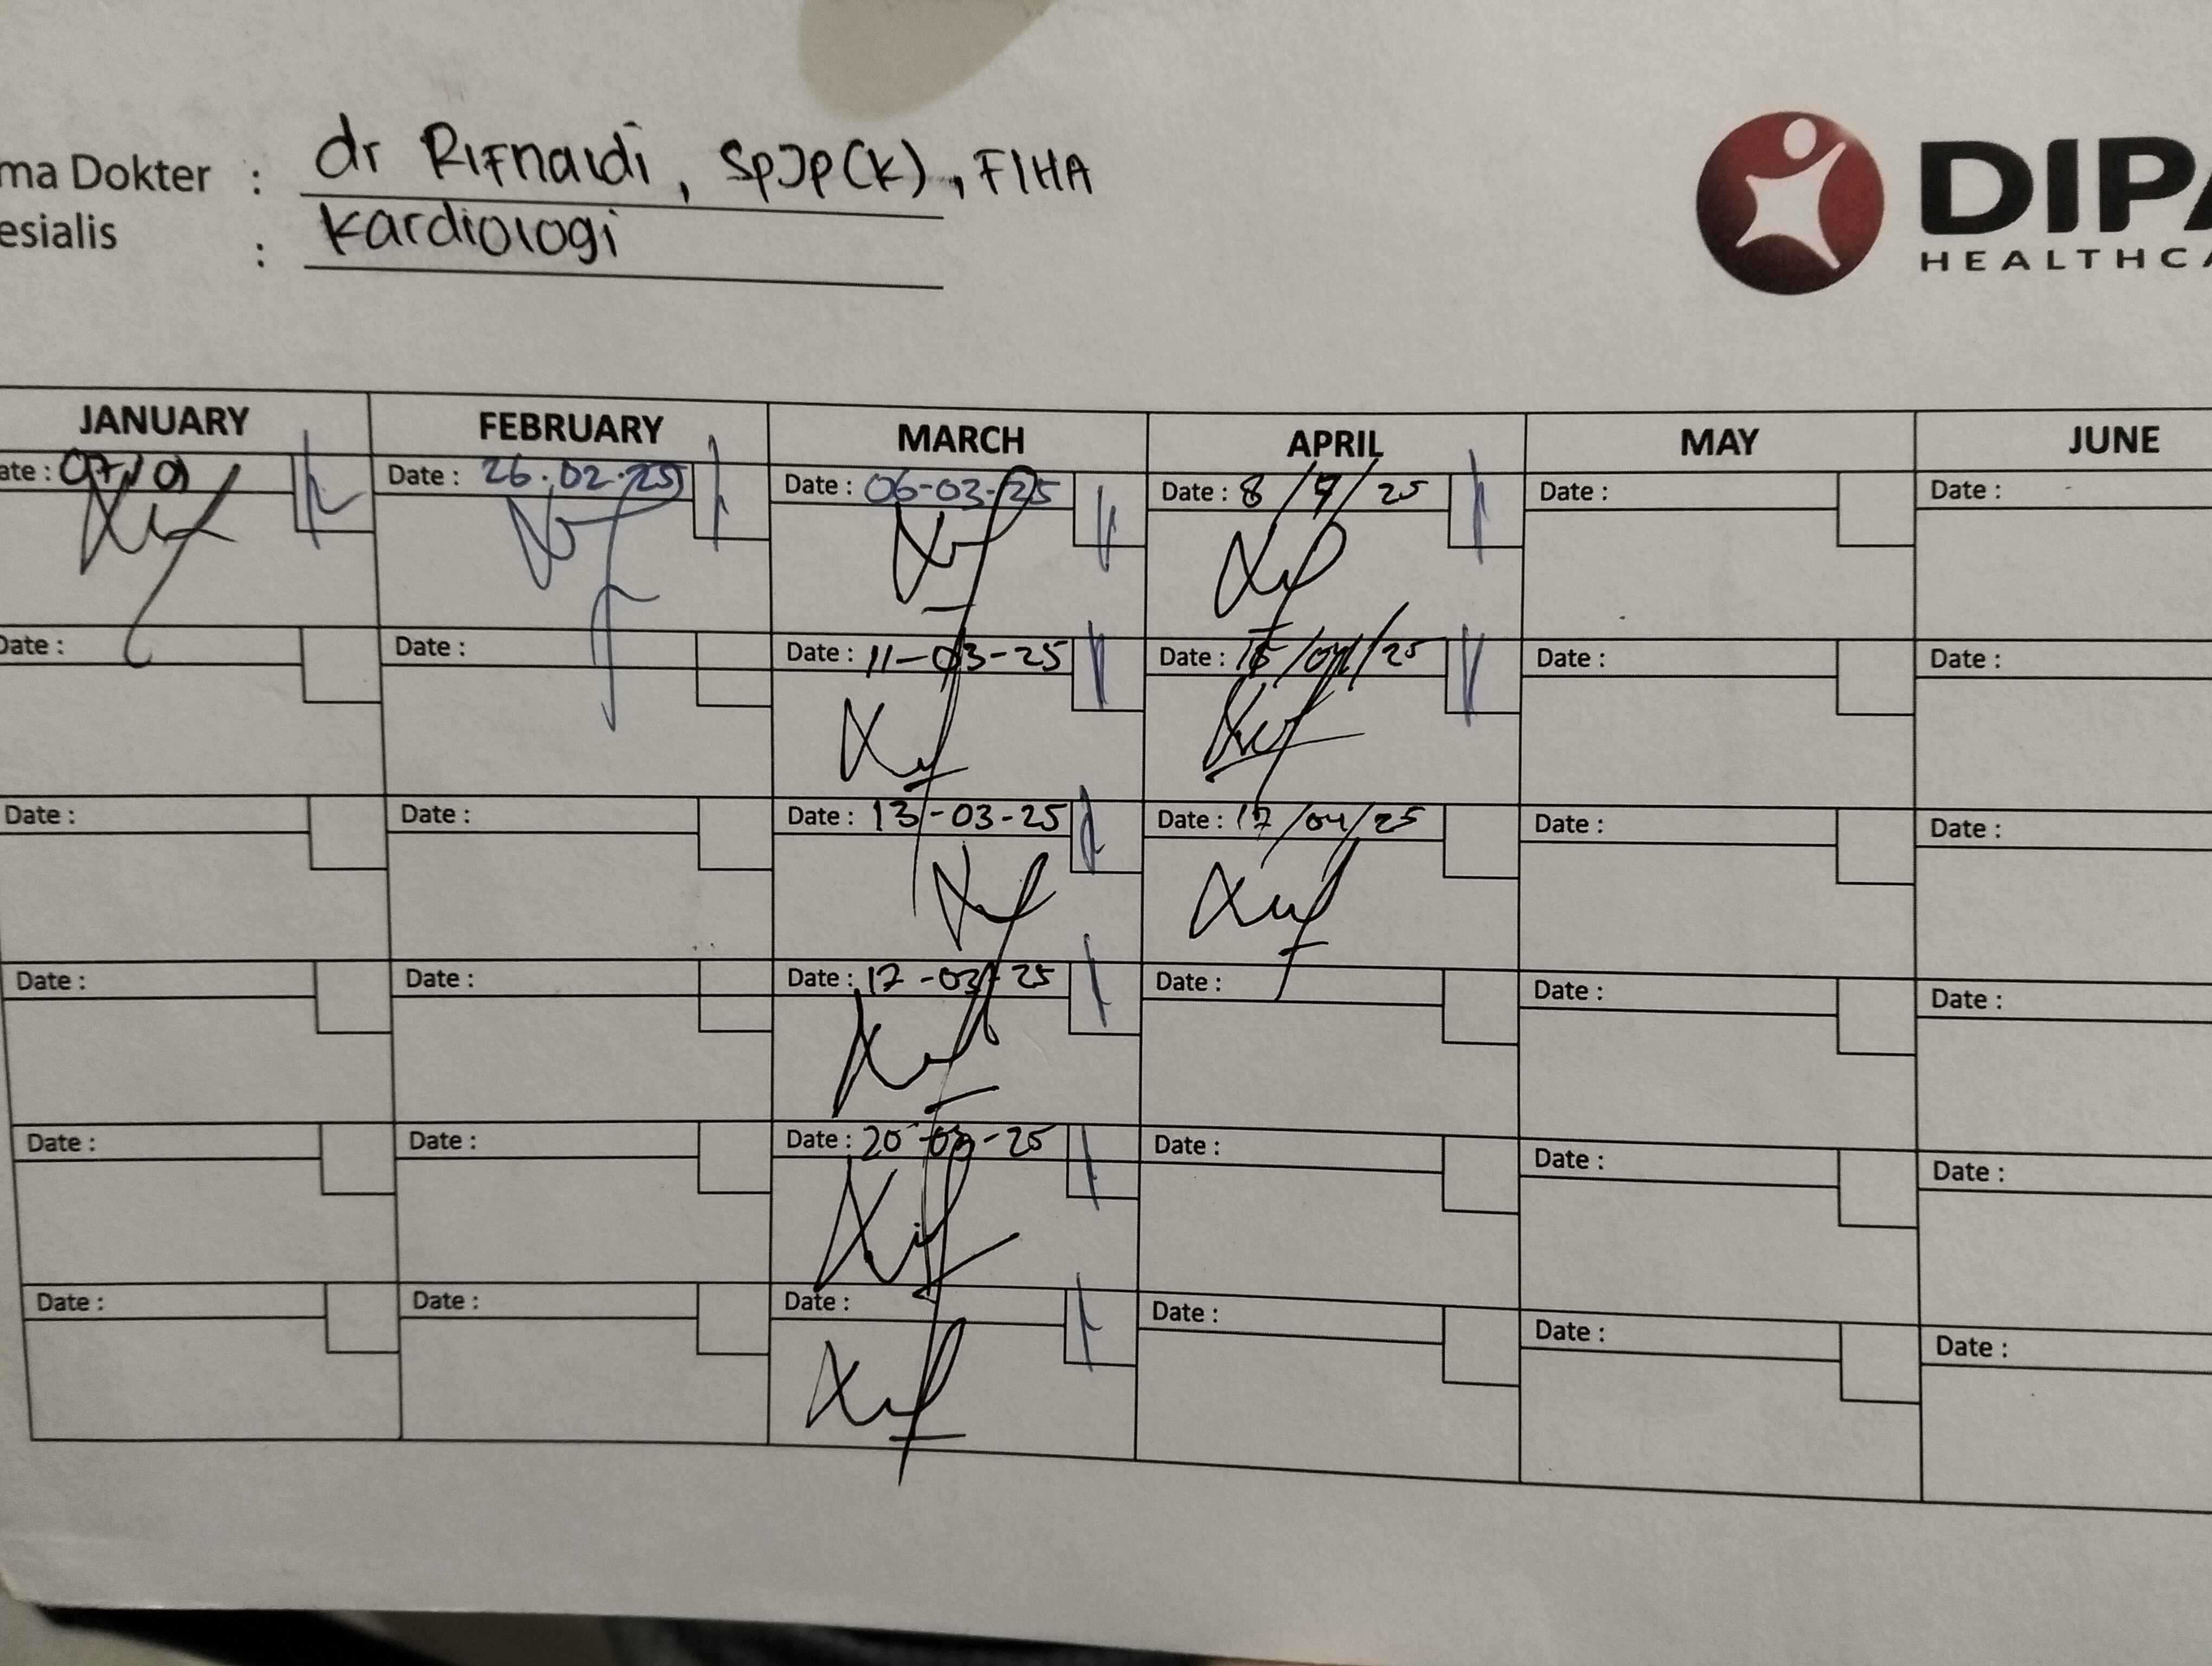 ma Dokter : dr Rifnaldi, SpJP(K), FIHA
esialis : Kardiologi
DIPA
HEALTHCA
JANUARY FEBRUARY MARCH APRIL MAY JUNE
ate : 07/01 Date : 26.02.25 Date : 06-03-25 Date : 8/4/25 Date : Date :
Date : Date : Date : 11-03-25 Date : 15/04/25 Date : Date :
Date : Date : Date : 13-03-25 Date : 17/04/25 Date : Date :
Date : Date : Date : 17-03-25 Date : Date : Date :
Date : Date : Date : 20-03-25 Date : Date : Date :
Date : Date : Date : Date : Date : Date :